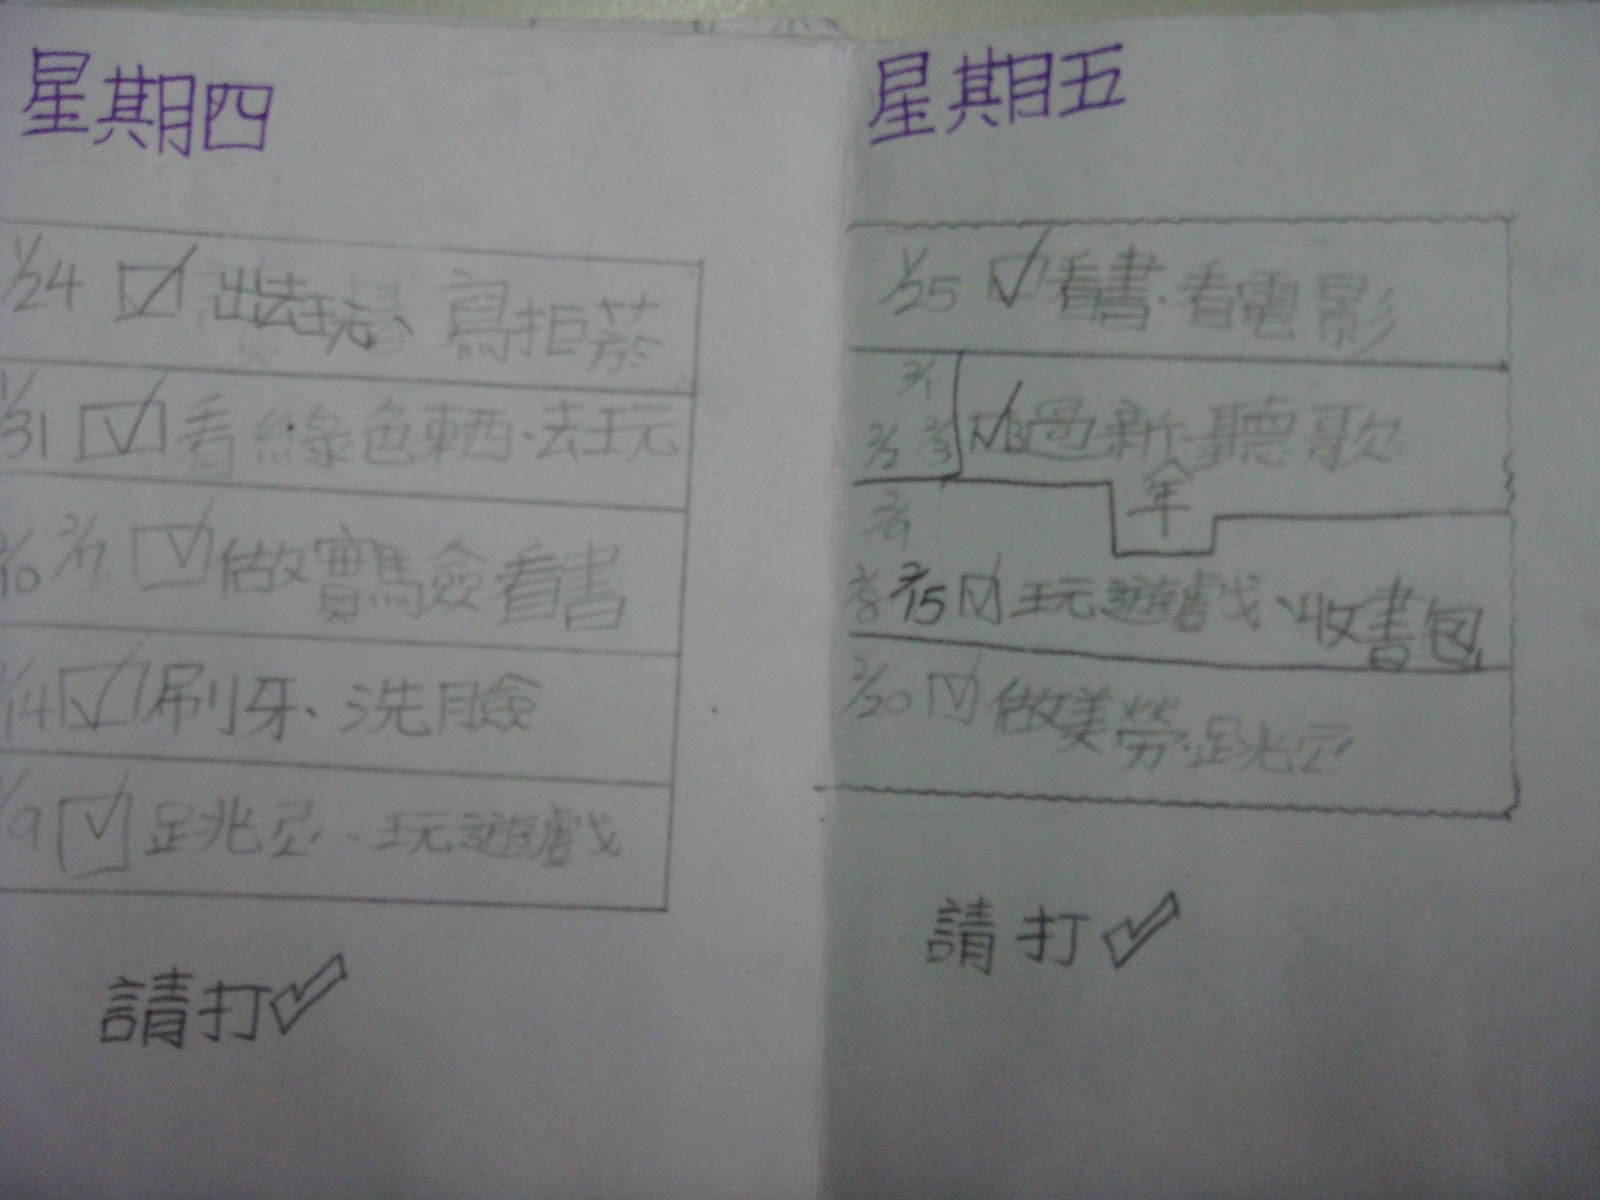 星期四
1/24 出去玩、寫拒菸
1/31 看綠色東西、去玩
2/7 做實驗、看書
/14 刷牙、洗臉
/9 跳、玩遊戲
請打✓
星期五
1/25 看書、看電影
2/1
2/2 2/3 過新年、聽歌
2/8 2/15 玩遊戲、收書包
2/20 做美勞、跳
請打✓